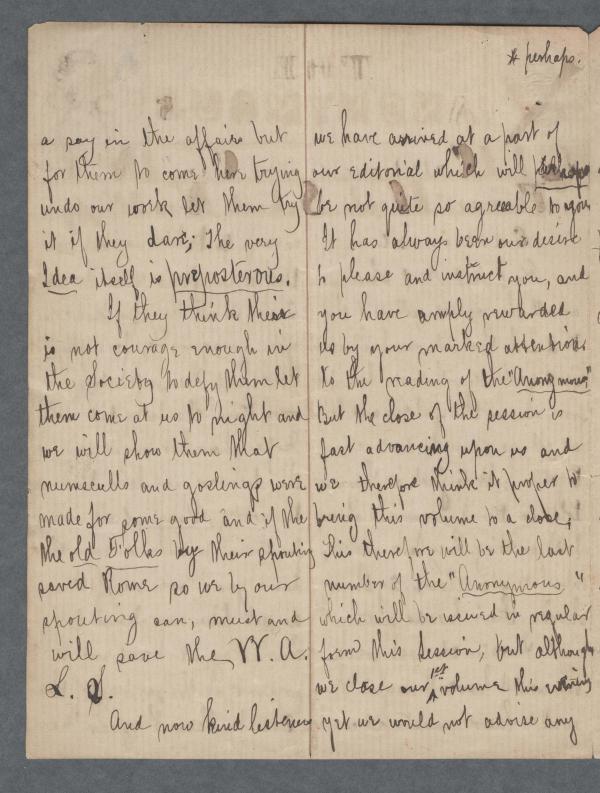 a say in the affairs but
for them to come here trying
undo our work let them try
it if they dare; The very
Idea itself is preposterous.
If they think their
is not courage enough in
the Society to defy them let
them come at us to night and
we will show them that
numsculls and goslings were
made for some good and if the
the old Folks by their spouting
saved Rome so we by our
spouting can, must and
will save the W. A.
L. S.
And now kind listeners
* perhaps.
we have arrived at a part of
our editorial which will perhaps
be not quite so agreeable to you
It has always been our desire
to please and instruct you, and
you have amply rewarded
us by your marked attention
to the reading of the "Anonymous"
But the close of the session is
fast advancing upon us and
we therefore think it proper to
bring this volume to a close;
This therefore will be the last
number of the "Anonymous"
which will be issued in regular
form this session, but although
we close our 1st volume this evening
yet we would not advise any